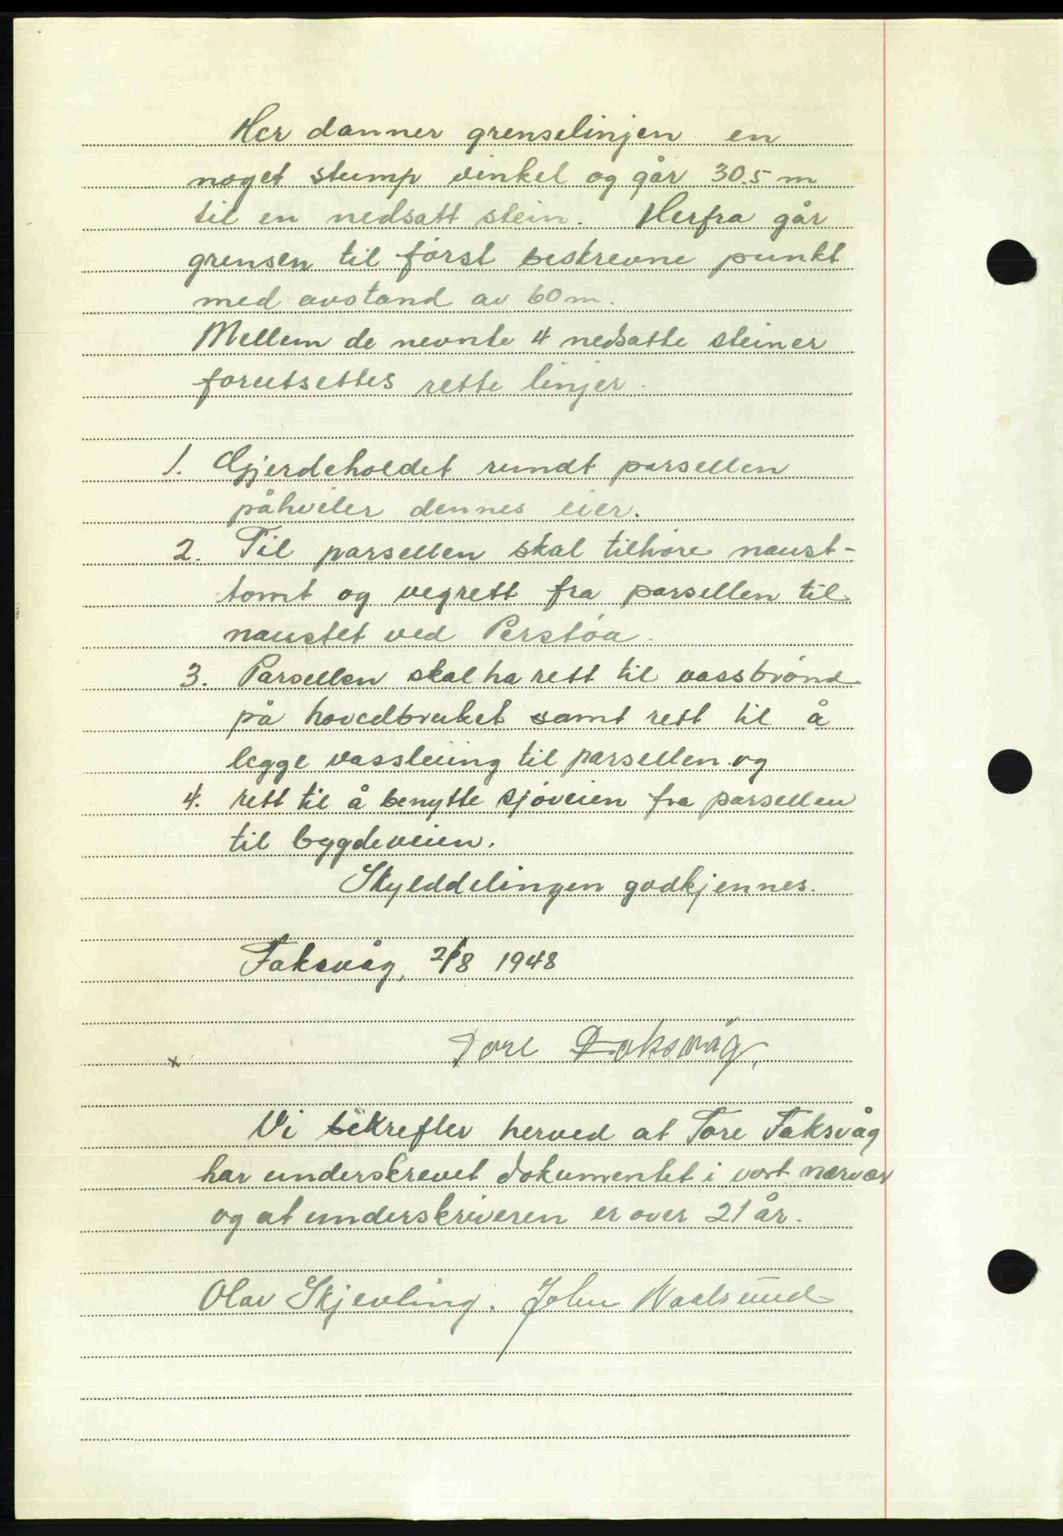 Her danner grenselinjen en
noget stump vinkel og går 30.5 m
til en nedsatt stein. Herfra går
grensen til først beskrevne punkt
med avstand av 60 m.
Mellem de nevnte 4 nedsatte steiner
forutsettes rette linjer.
1. Gjerdeholdet rundt parsellen
påhviler dennes eier.
2. Til parsellen skal tilhøre naust-
tomt og vegrett fra parsellen til
naustet ved Perstøa.
3. Parsellen skal ha rett til vassbrønd
på hovedbruket samt rett til å
legge vassleiing til parsellen og
4. rett til å benytte sjøveien fra parsellen
til bygdeveien.
Skylddelingen godkjennes.
Taksvåg, 2/8 1948
x Tore Taksvåg.
Vi bekrefter herved at Tore Taksvåg
har underskrevet dokumentet i vort nærvær
og at underskriveren er over 21 år.
Olav Skjevling. John